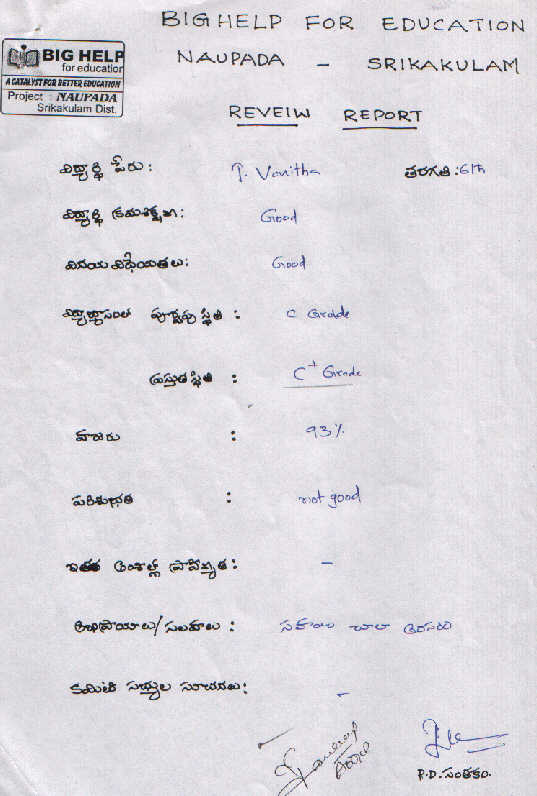 BIG HELP FOR EDUCATION
NAUPADA - SRIKAKULAM
BIG HELP
for education
A CATALYST FOR BETTER EDUCATION
Project : NAUPADA
Srikakulam Dist.
REVEIW REPORT
విద్యార్థి పేరు : P. Vanitha తరగతి : 6th
విద్యార్థి క్రమశిక్షణ : Good
వినయ విధేయతలు : Good
విద్యాభ్యాసంలో పూర్వపు స్థితి : C Grade
ప్రస్తుత స్థితి : C+ Grade
హాజరు : 93%
పరిశుభ్రత : not good
ఇతర అంశాల్లో ప్రావీణ్యత : -
అభిప్రాయాలు/సలహాలు : సహాయం చాలా అవసరం
కమిటీ సభ్యుల సూచనలు : -
P.D. సంతకం.